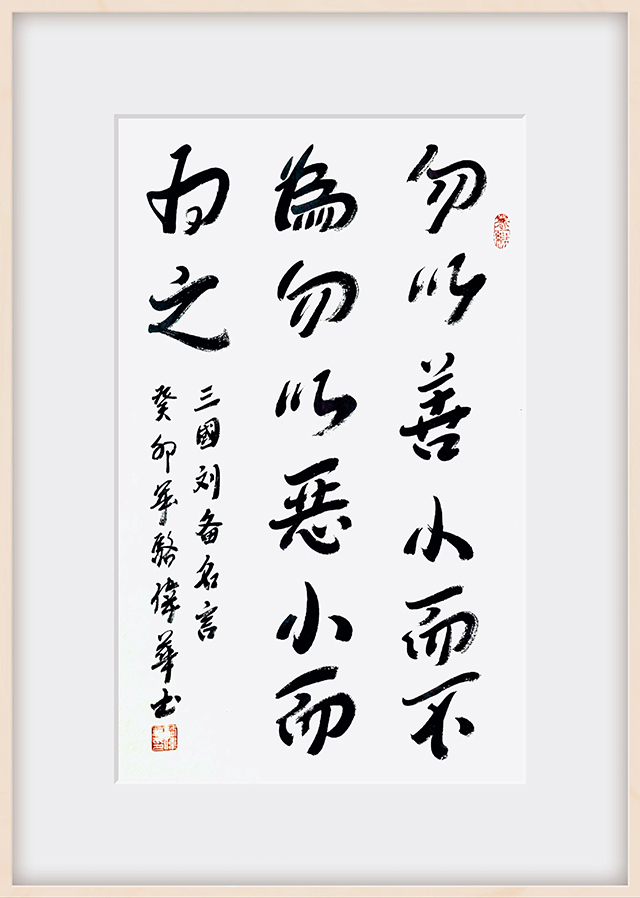 勿以善小而不
為勿以惡小而
为之
三國刘备名言
癸卯年駱偉華书